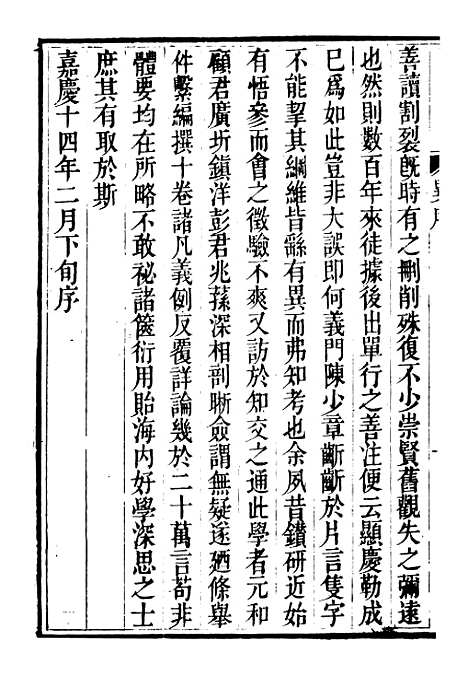 善讀割裂旣時有之刪削殊復不少崇賢舊觀失之彌遠
也然則數百年來徒據後出單行之善注便云顯慶勒成
已爲如此豈非大誤即何義門陳少章齗齗於片言隻字
不能挈其綱維皆繇有異而弗知考也余夙昔鑽研近始
有悟參而會之徵驗不爽又訪於知交之通此學者元和
顧君廣圻鎮洋彭君兆蓀深相剖晰僉謂無疑遂廼條舉
件繫編撰十卷諸凡義例反覆詳論幾於二十萬言苟非
體要均在所略不敢祕諸篋衍用貽海內好學深思之士
庶其有取於斯
嘉慶十四年二月下旬序